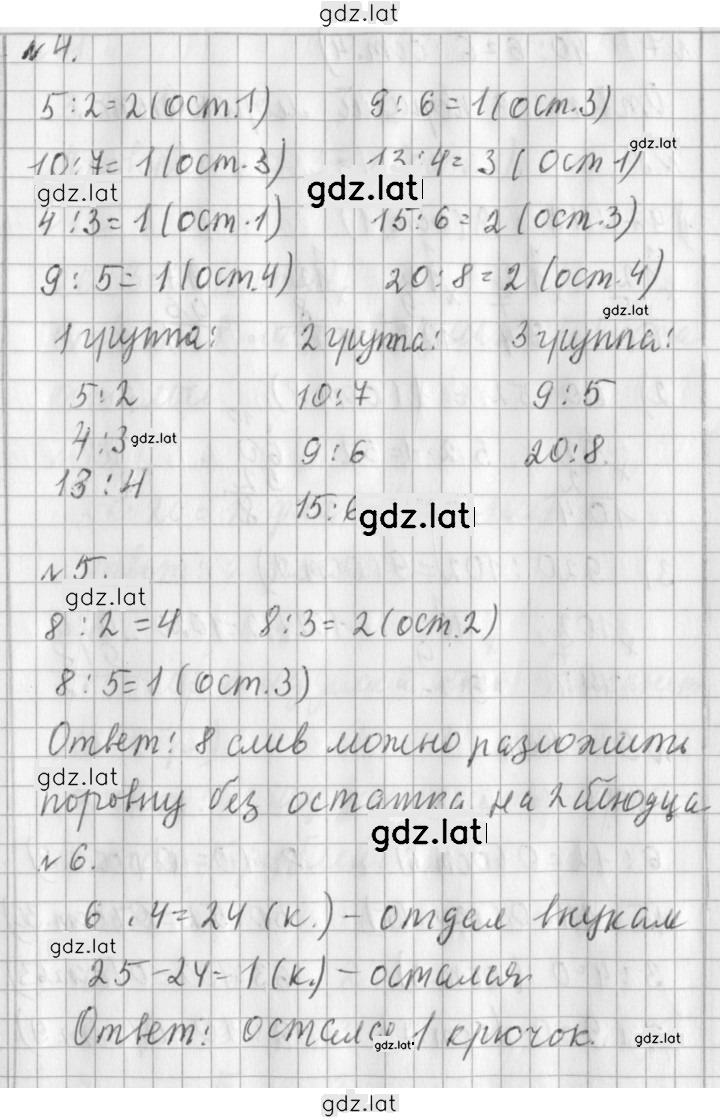 gdz.lat
№ 4.
5 : 2 = 2 (ост. 1) 9 : 6 = 1 (ост. 3)
gdz.lat
10 : 7 = 1 (ост. 3) 13 : 4 = 3 (ост 1)
gdz.lat gdz.lat
4 : 3 = 1 (ост. 1) 15 : 6 = 2 (ост. 3)
9 : 5 = 1 (ост. 4) 20 : 8 = 2 (ост. 4)
gdz.lat
1 группа: 2 группа: 3 группа:
5 : 2 10 : 7 9 : 5
4 : 3 gdz.lat 9 : 6 20 : 8.
13 : 4
15 : 6 gdz.lat
№ 5.
gdz.lat
8 : 2 = 4 8 : 3 = 2 (ост. 2)
8 : 5 = 1 (ост. 3)
Ответ: 8 слив можно разложить
gdz.lat
поровну без остатка на 2 блюдца
gdz.lat
№ 6.
6 · 4 = 24 (к.) – отдал внукам
gdz.lat
25 – 24 = 1 (к.) – остался
Ответ: остался 1 крючок.
gdz.lat gdz.lat
gdz.lat